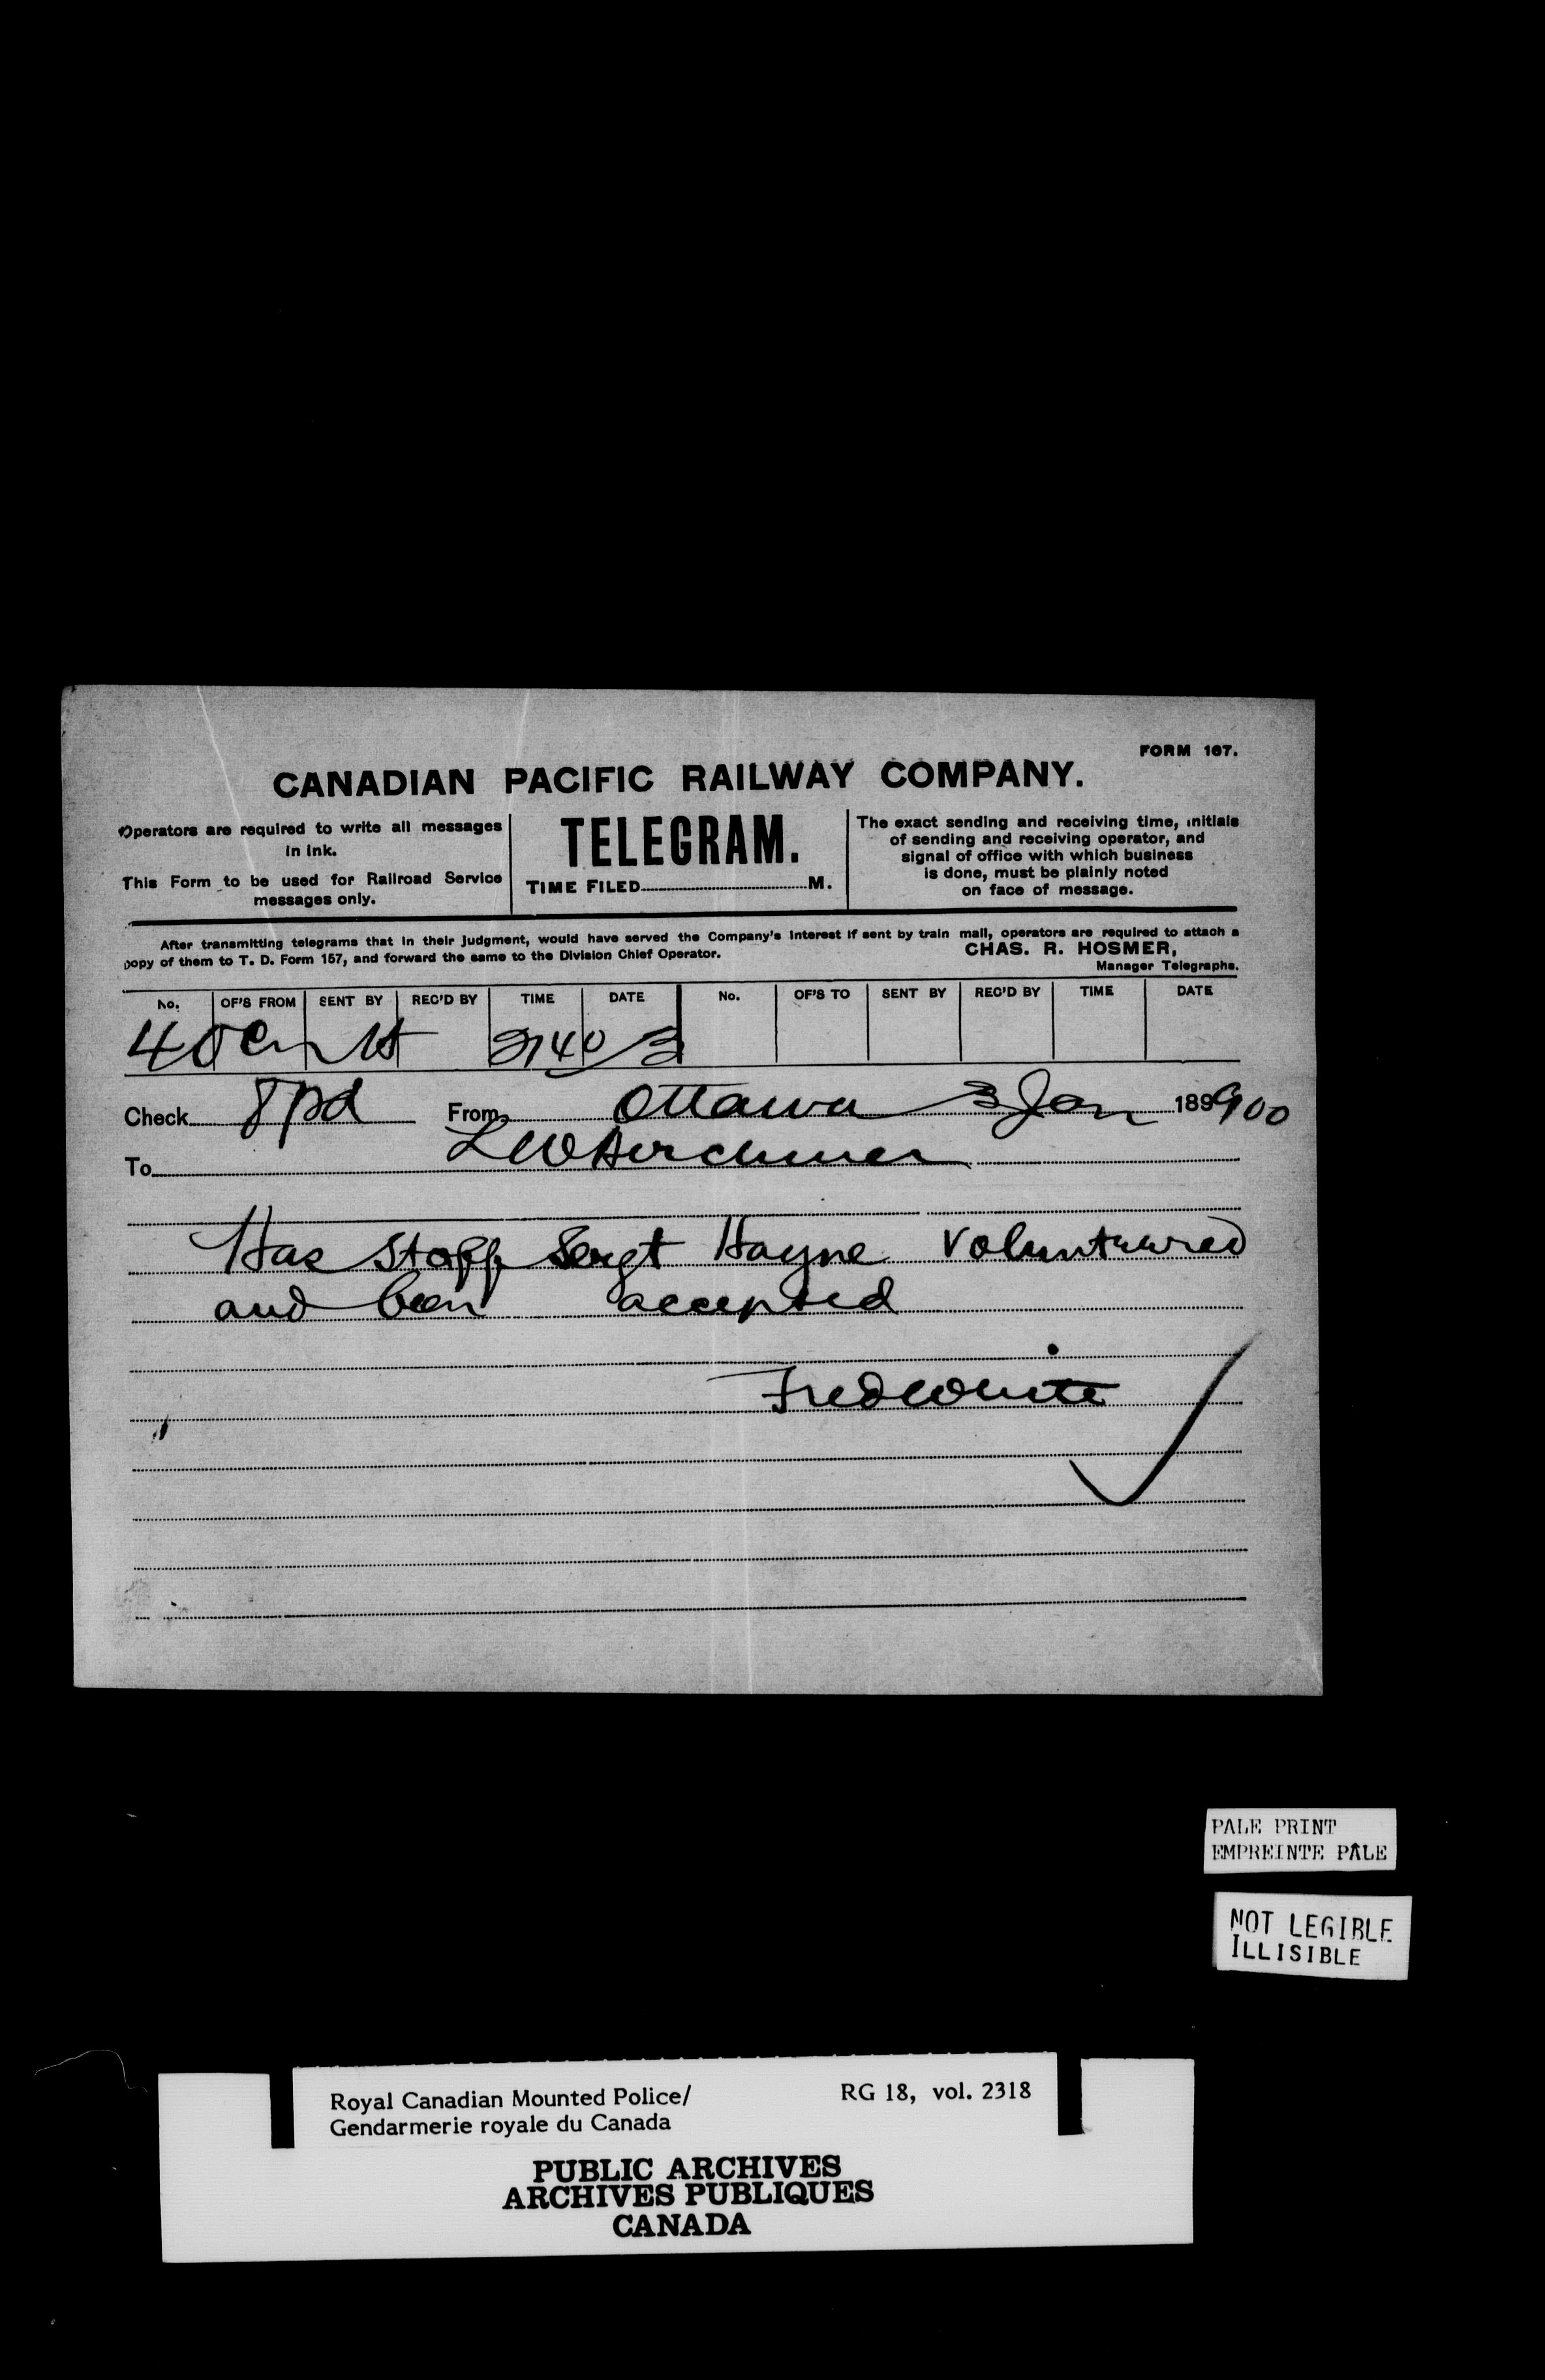 FORM 167.
CANADIAN PACIFIC RAILWAY COMPANY.
Operators are required to write all messages
in ink.
This Form to be used for Railroad Service
messages only.
TELEGRAM.
TIME FILED M.
The exact sending and receiving time, initials
of sending and receiving operator, and
signal of office with which business
is done, must be plainly noted
on face of message.
After transmitting telegrams that in their judgment, would have served the Company's interest if sent by train mail, operators are required to attach a
copy of them to T. D. Form 157, and forward the same to the Division Chief Operator.
CHAS. R. HOSMER,
Manager Telegraphs.
No. OF'S FROM SENT BY REC'D BY TIME DATE No. OF'S TO SENT BY REC'D BY TIME DATE
40 3
Check 8 pd From Ottawa 3 Jan 189 900
To L W Herchmer
Has Staff Sergt Hayne volunteered
and been accepted
Fred White
PALE PRINT
EMPREINTE PÂLE
NOT LEGIBLE
ILLISIBLE
Royal Canadian Mounted Police/ RG 18, vol. 2318
Gendarmerie royale du Canada
PUBLIC ARCHIVES
ARCHIVES PUBLIQUES
CANADA